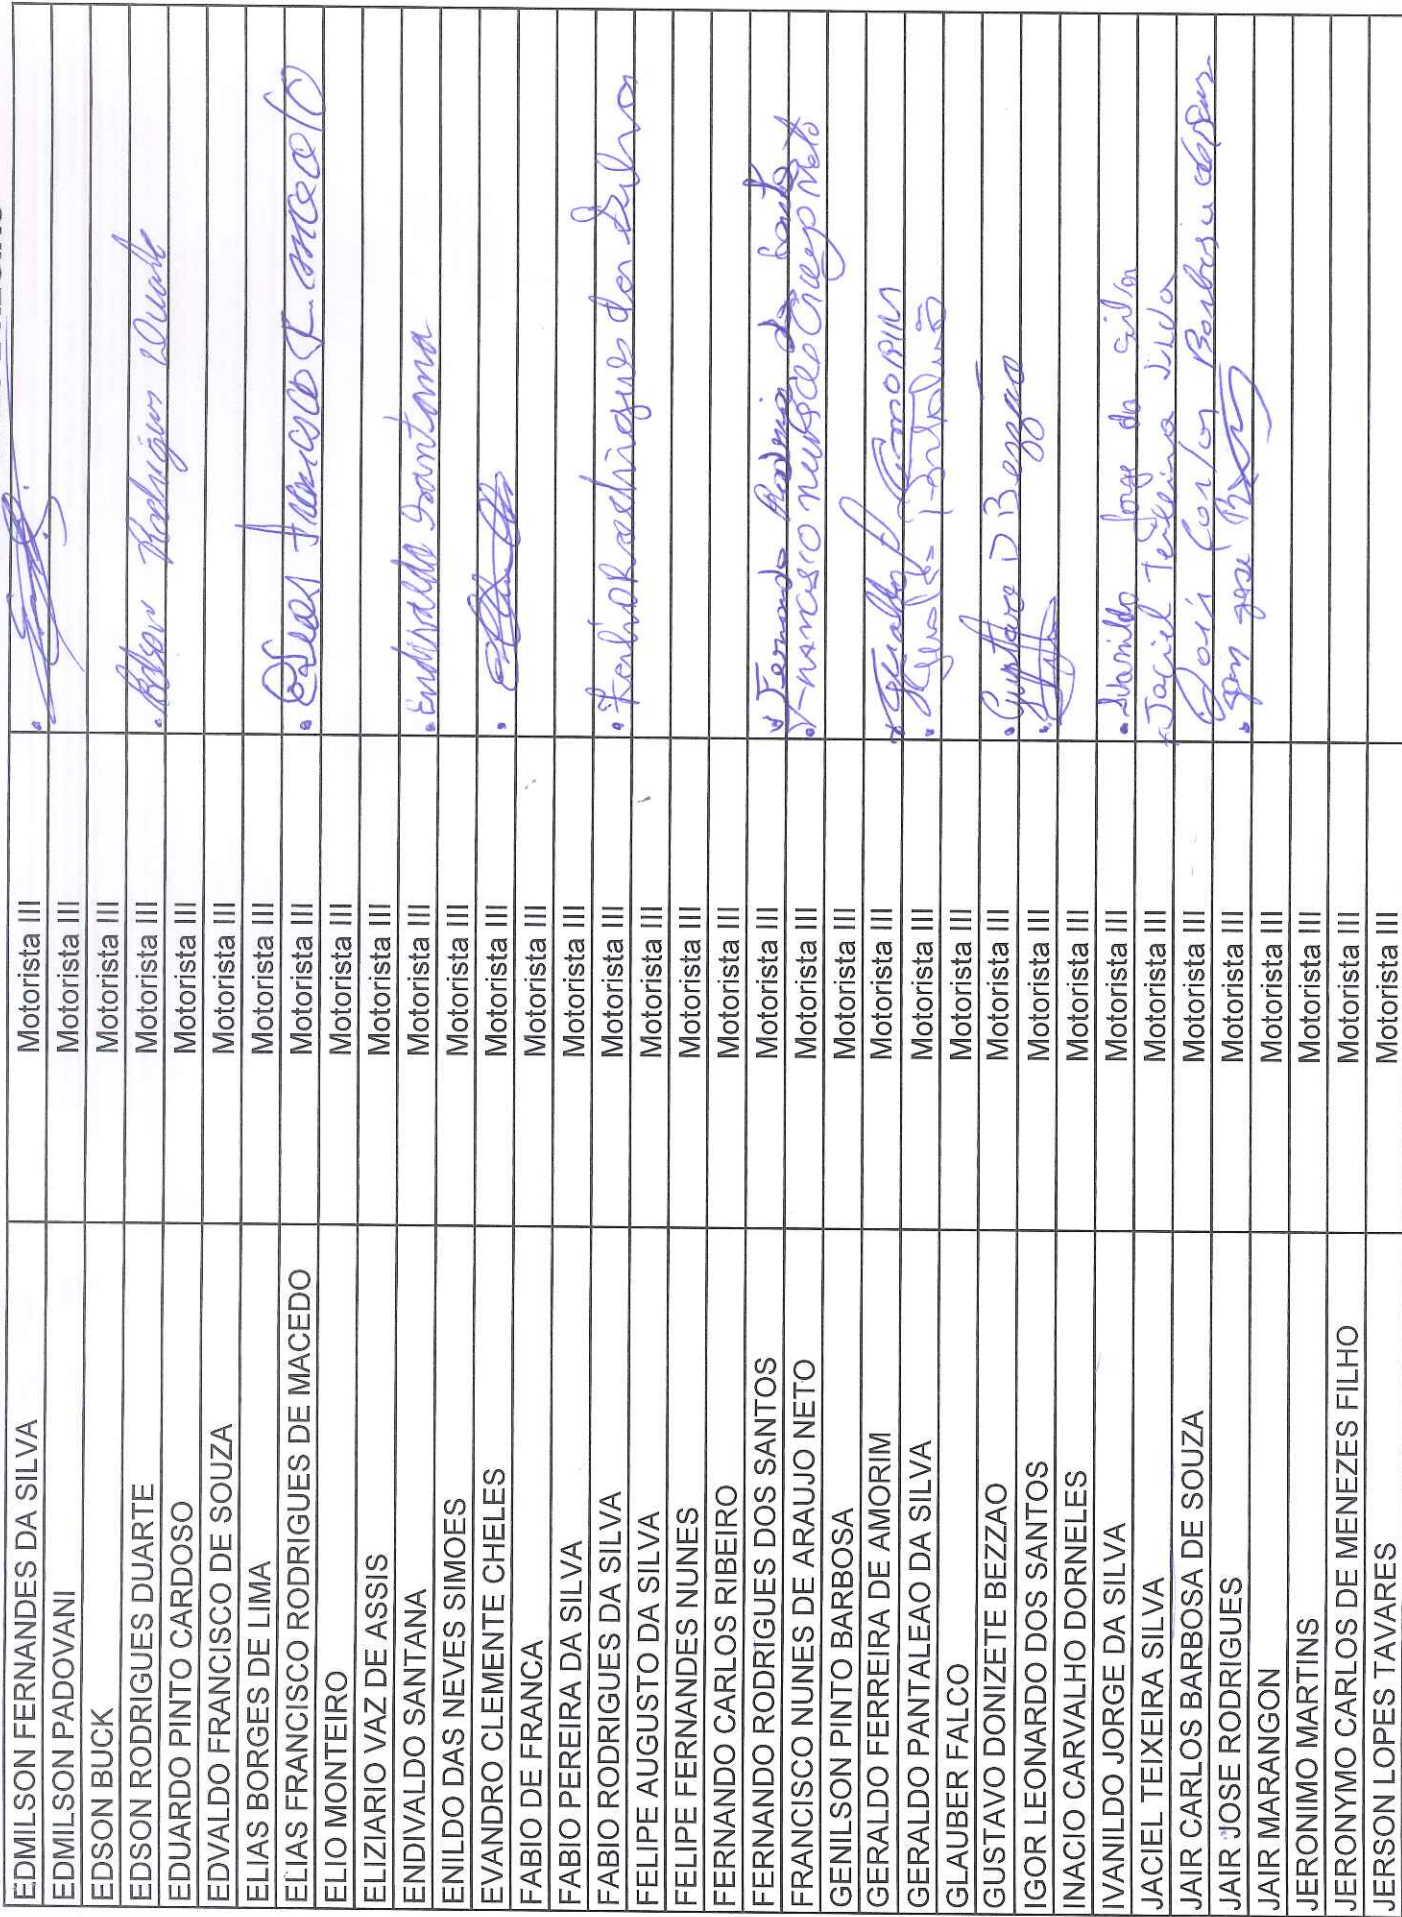 EDMILSON FERNANDES DA SILVA Motorista III
EDMILSON PADOVANI Motorista III
EDSON BUCK Motorista III
EDSON RODRIGUES DUARTE Motorista III Edson Rodrigues Duarte
EDUARDO PINTO CARDOSO Motorista III
EDVALDO FRANCISCO DE SOUZA Motorista III
ELIAS BORGES DE LIMA Motorista III
ELIAS FRANCISCO RODRIGUES DE MACEDO Motorista III Elias Francisco R. macedo
ELIO MONTEIRO Motorista III
ELIZIARIO VAZ DE ASSIS Motorista III
ENDIVALDO SANTANA Motorista III Endivaldo Santana
ENILDO DAS NEVES SIMOES Motorista III
EVANDRO CLEMENTE CHELES Motorista III
FABIO DE FRANCA Motorista III
FABIO PEREIRA DA SILVA Motorista III
FABIO RODRIGUES DA SILVA Motorista III Fabio Rodrigues da Silva
FELIPE AUGUSTO DA SILVA Motorista III
FELIPE FERNANDES NUNES Motorista III
FERNANDO CARLOS RIBEIRO Motorista III
FERNANDO RODRIGUES DOS SANTOS Motorista III Fernando
FRANCISCO NUNES DE ARAUJO NETO Motorista III Francisco nunes de Araujo Neto
GENILSON PINTO BARBOSA Motorista III
GERALDO FERREIRA DE AMORIM Motorista III Geraldo F Amorim
GERALDO PANTALEAO DA SILVA Motorista III Geraldo
GLAUBER FALCO Motorista III
GUSTAVO DONIZETE BEZZAO Motorista III Gustavo D Bezzão
IGOR LEONARDO DOS SANTOS Motorista III
INACIO CARVALHO DORNELES Motorista III
IVANILDO JORGE DA SILVA Motorista III Ivanildo Jorge da Silva
JACIEL TEIXEIRA SILVA Motorista III Jaciel Teixeira Silva
JAIR CARLOS BARBOSA DE SOUZA Motorista III Jair Carlos Barbosa
JAIR JOSE RODRIGUES Motorista III Jair Jose
JAIR MARANGON Motorista III
JERONIMO MARTINS Motorista III
JERONYMO CARLOS DE MENEZES FILHO Motorista III
JERSON LOPES TAVARES Motorista III